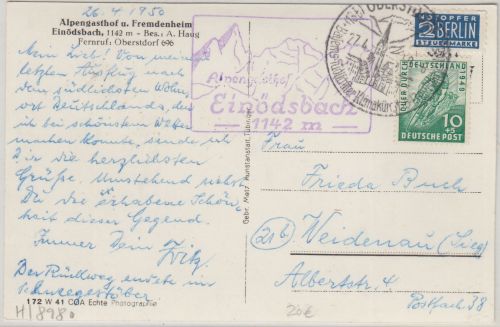 26.4.1950
Alpengasthof u. Fremdenheim
Einödsbach, 1142 m - Bes.: A. Haug
Fernruf: Oberstdorf 696
Mein Lieb! Von meinem
letzten nach
dem südlichsten Wohn-
ort Deutschlands, den
ich bei schönstem Wetter
machen konnte, sende ich
Dir die herzlichsten
Grüße. Umstehend siehst
Du die erhabene Schön-
heit dieser Gegend.
Immer Dein Fritz.
Der Rückweg endete im
Schneegestöber.
172 W 41 COA Echte Photographie
H/898
Gebr. Metz, Kunstanstalt, Tübingen
Alpengasthof
Einödsbach
1142 m
OBERSTDORF
27.4.
NOTOPFER
2 BERLIN
STEUERMARKE
QUER DURCH
DEUTSCHLAND
1949
10
+5
DEUTSCHE POST
Frau
Frieda Buch
(21b) Weidenau (Sieg)
Albertstr. 4
Postfach 38
20€